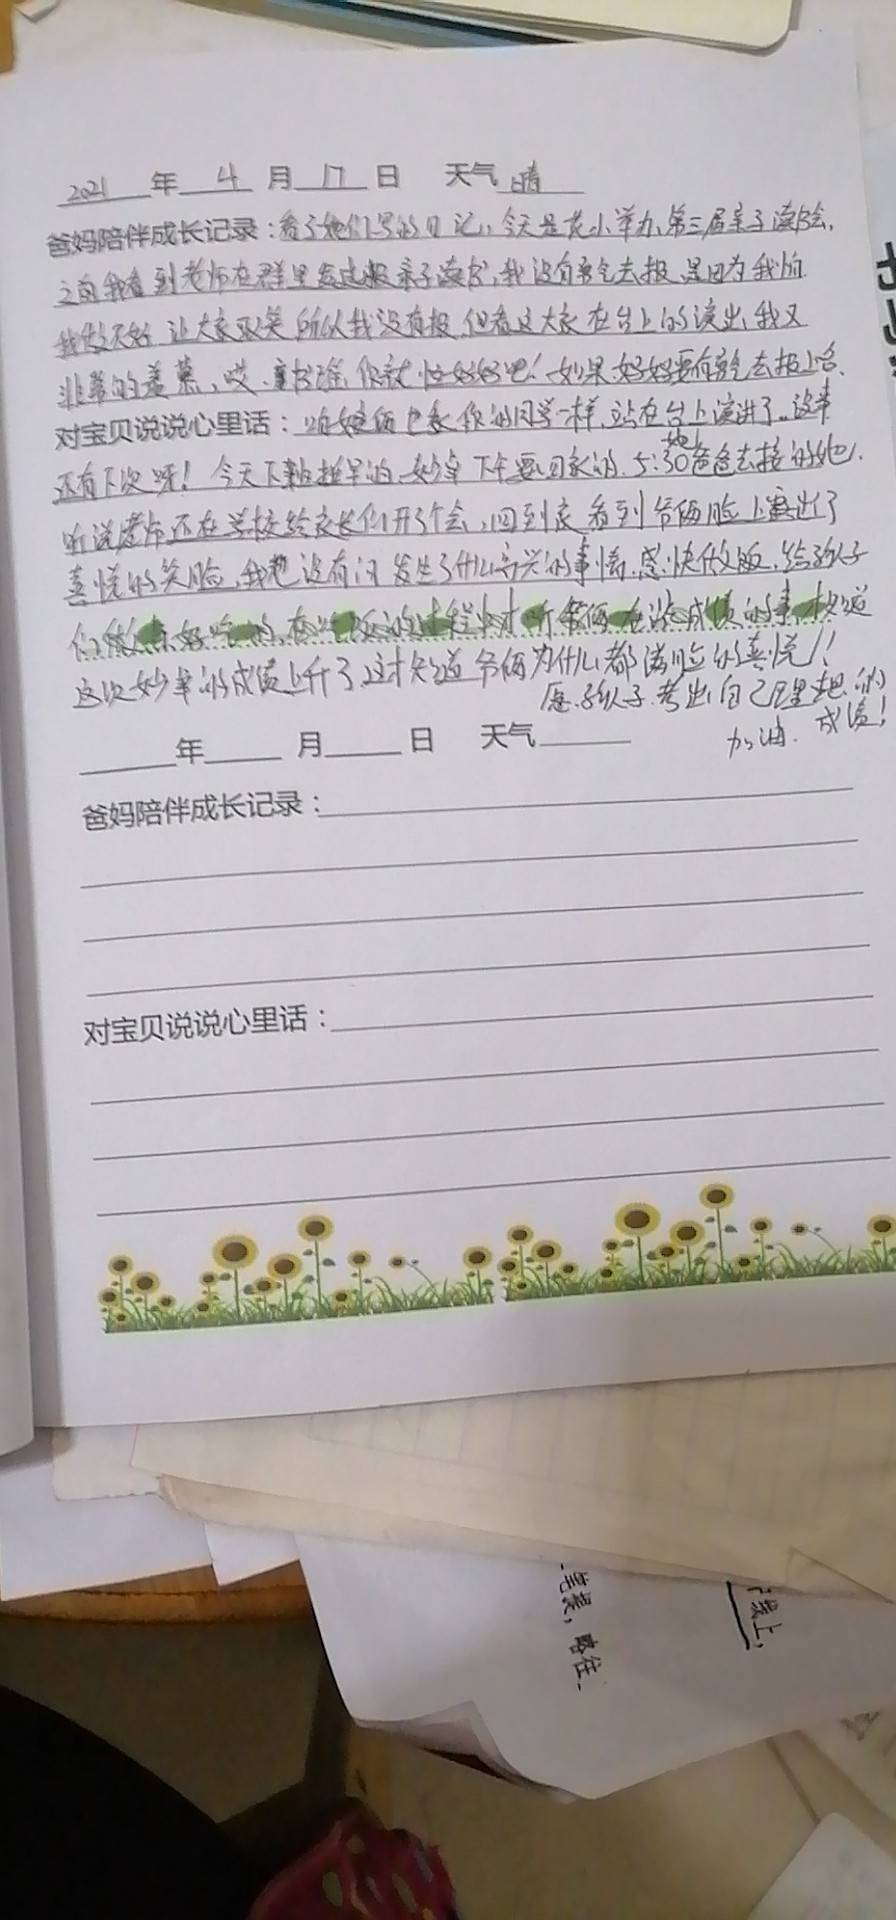 2021 年 4 月 17 日 天气 晴
爸妈陪伴成长记录：看了她们写的日记，今天是 小举办第三届亲子读书会，
之前我看到老师在群里发过报亲子读书，我没有勇气去报 是因为我怕
我做不好 让大家取笑 所以我没有报 但看这大家在台上的演出 我又
非常的羡慕，哎 你就 吧！如果好好要有勇气去报上台、
对宝贝说说心里话：咱娘俩也和你的同学一样，站在台上演讲了。没事
还有下次呀！今天下班挺早的 下午要回家的，5:30爸爸去接的她，
听说老师还在学校给家长们开了个会，回到家 看到爷俩脸上露出了
喜悦的笑脸，我也没有问 发生了什么高兴的事情，赶快做饭，给孩子
们做点好吃的，在吃饭的过程中才听爷俩在说成绩的事，才知道
这次妙 的成绩上升了，这才知道爷俩为什么都满脸的喜悦！！
愿孩子考出自己理想的
加油. 成绩！
年 月 日 天气
爸妈陪伴成长记录：
对宝贝说说心里话：
笔误，略往
线上，